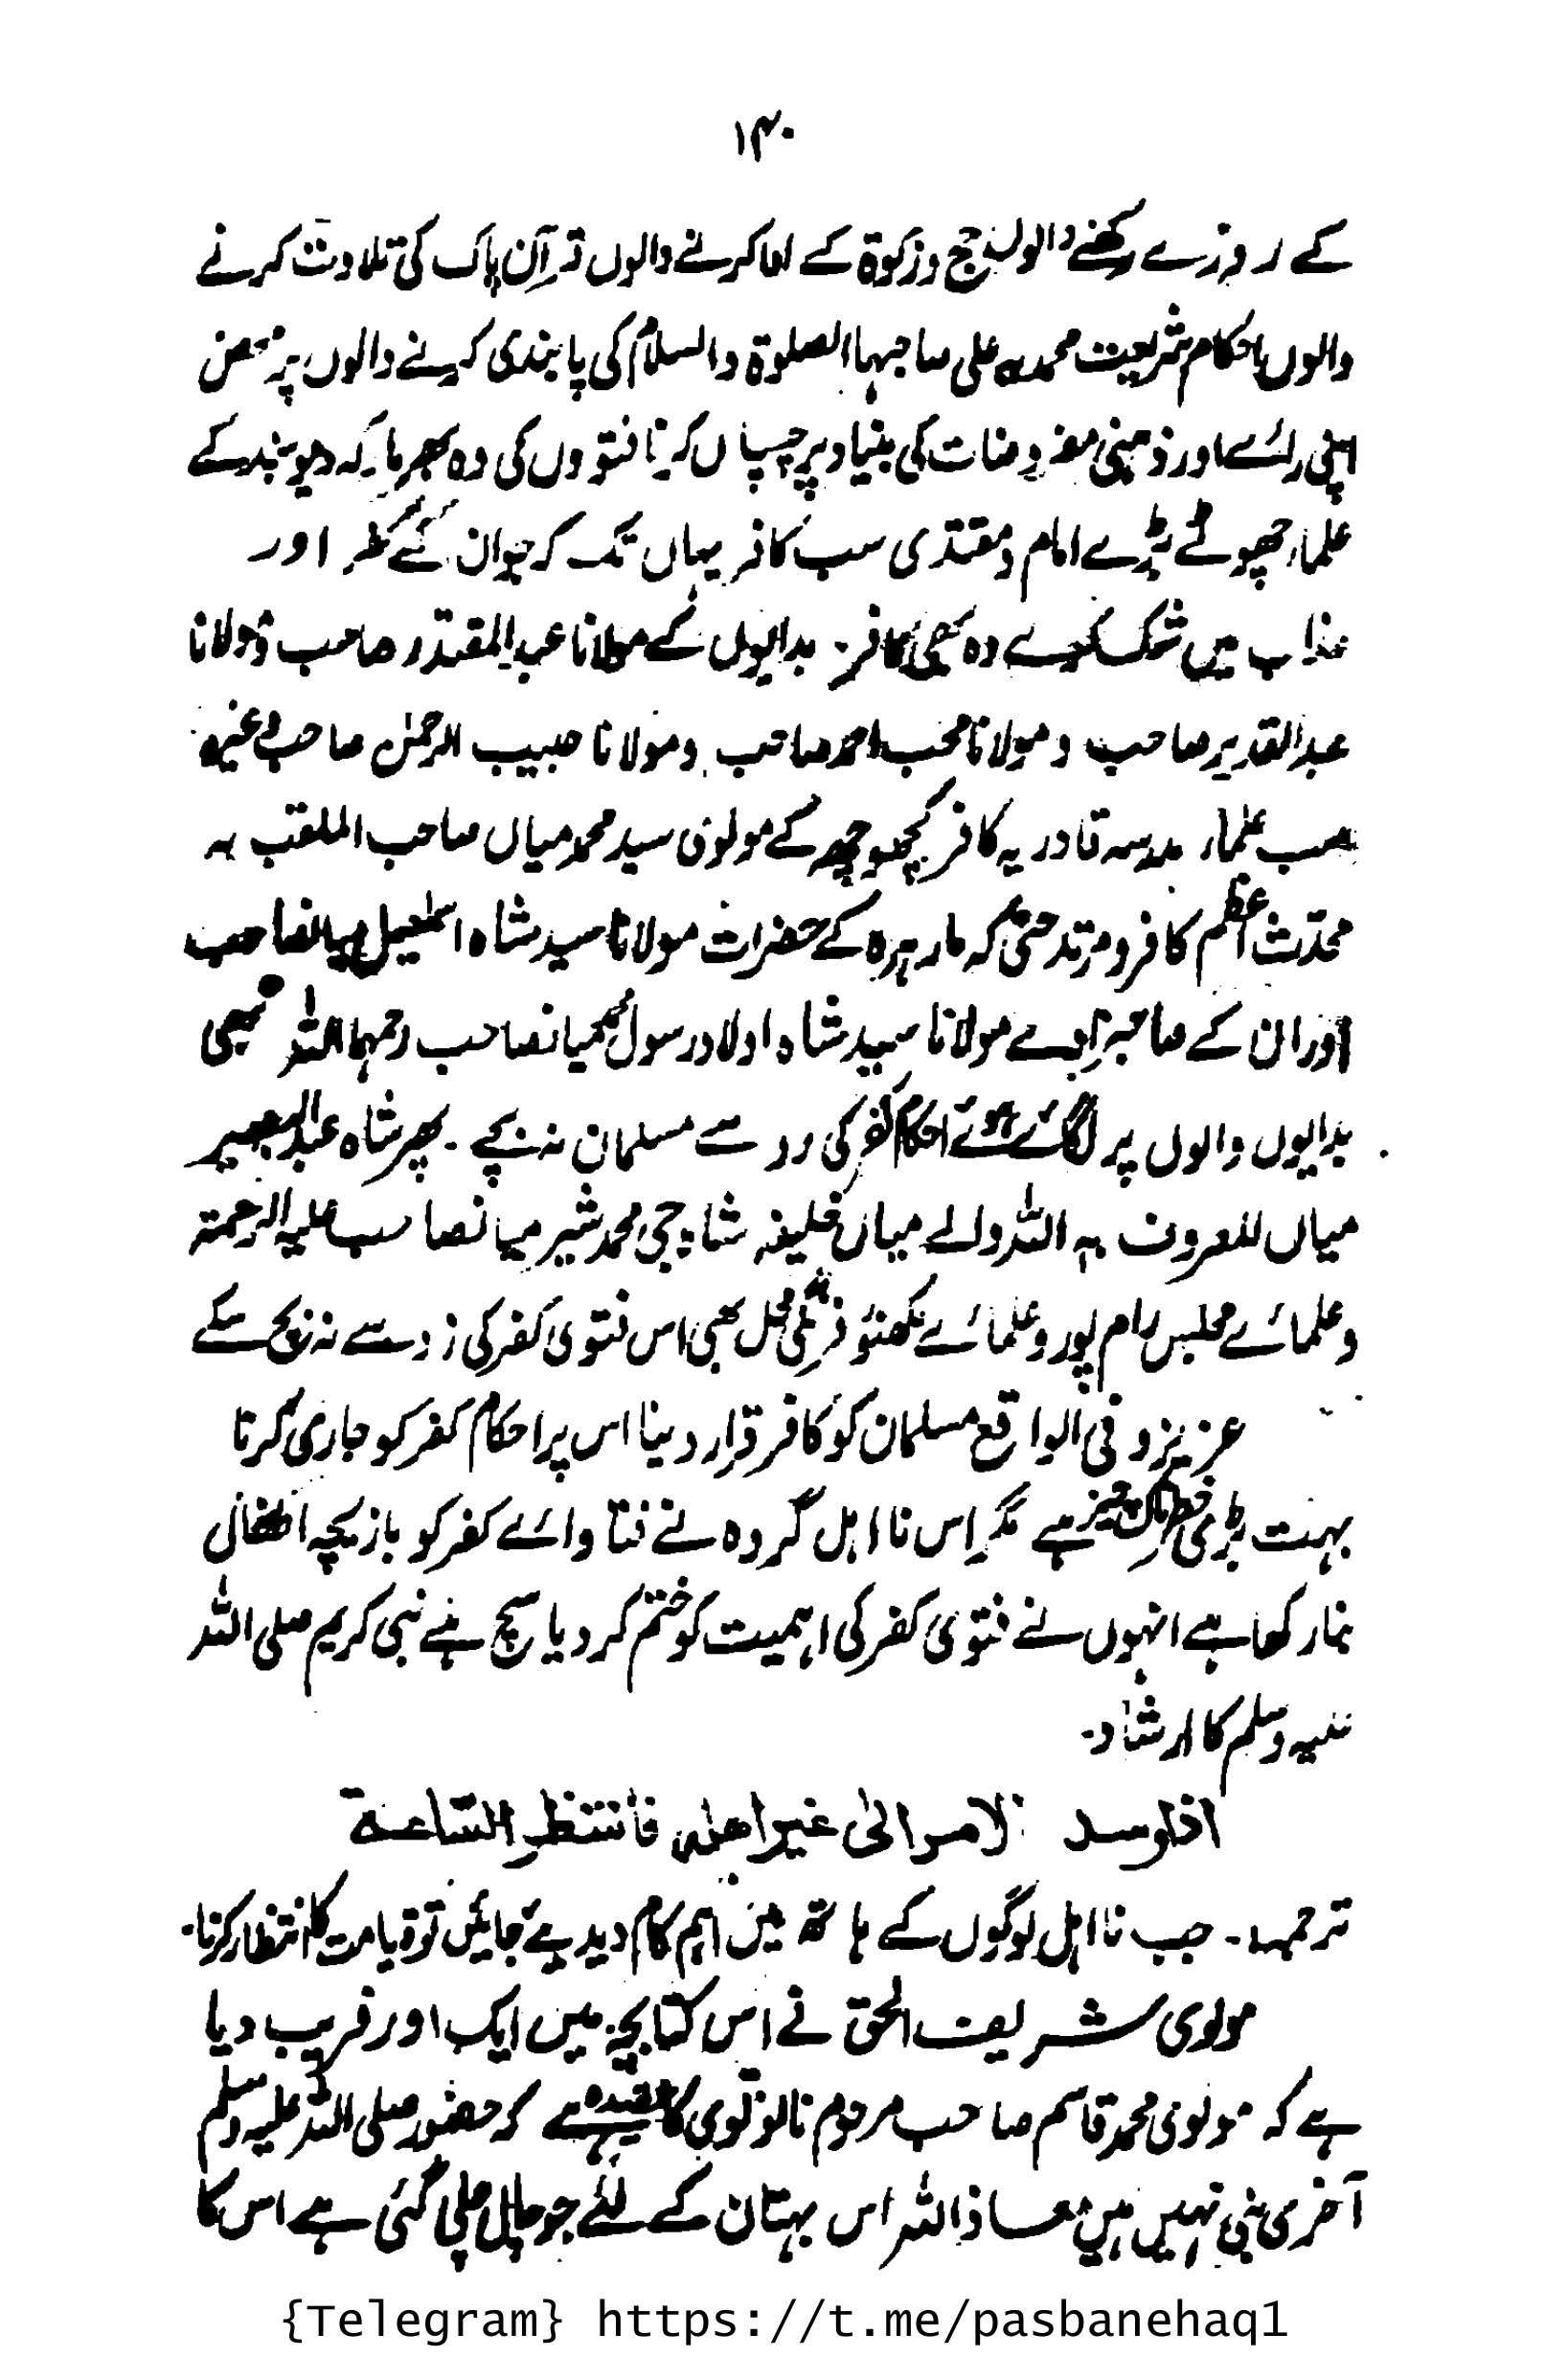 ۱۴۰
کے روزے رکھنے والوں حج و زکوٰۃ کے ادا کرنے والوں قرآن پاک کی تلاوت کرنے
والوں احکام شریعت محمدیہ علی صاجہا الصلوۃ والسلام کی پابندی کرنے والوں پر محض
اپنی رائے اور ذہنی مفروضات کی بنیاد پر چسپاں کرنا فتووں کی وہ بھرمار کہ دیوبند کے
علماء چھوٹے بڑے امام و مقتدی سب کافر یہاں تک کہ جو ان کے کفر اور
عذاب میں شک کرے وہ بھی کافر۔ بدایوں کے مولانا عبدالمقتدر صاحب و مولانا
عبدالقدیر صاحب و مولانا محب احمد صاحب و مولانا حبیب الرحمٰن صاحب وغیرہ
سب علماء مدرسہ قادریہ کافر کچھوچھہ کے مولوی سید محمد میاں صاحب الملقب بہ
محدّث اعظم کافر و مرتد حتیٰ کہ مارہرہ کے حضرات مولانا سید شاہ اسمٰعیل میانصاحب
اور ان کے صاحبزادے مولانا سید شاہ اولاد رسول محمد میانصاحب رحمہما اللہ بھی
بدایوں والوں پر لگائے ہوئے احکام کفر کی رو سے مسلمان نہ بچے۔ پھر شاہ عبدالبصیر
میاں المعروف بہ اللہ والے میاں خلیفہ شاہ جی محمد شیر میانصاحب علیہ الرحمتہ
و علمائے مجلس رام پور و علمائے لکھنؤ فرنگی محل بھی اس فتویٰ کفر کی زد سے نہ بچ سکے
عزیزو فی الواقع مسلمان کو کافر قرار دینا اس پر احکام کفر کو جاری کرنا
بہت بڑی خطرناک چیز ہے مگر اس نا اہل گروہ نے فتاوائے کفر کو بازیچہ اطفال
بنا رکھا ہے انہوں نے فتویٰ کفر کی اہمیت کو ختم کر دیا سچ ہے نبی کریم صلی اللہ
علیہ وسلم کا ارشاد۔
اذا وسد الامر الیٰ غیر اھلہ فانتظرِ السّاعۃ
ترجمہ۔ جب نا اہل لوگوں کے ہاتھ میں اہم کام دیدیئے جائیں تو قیامت کا انتظار کرنا۔
مولوی شریف الحق نے اس کتابچہ میں ایک اور فریب دیا
ہے کہ مولوی محمد قاسم صاحب مرحوم نانوتوی کا عقیدہ ہے کہ حضور صلی اللہ علیہ وسلم
آخری نبی نہیں ہیں معاذ اللہ اس بہتان کے لئے جو چال چلی گئی ہے اس کا
{Telegram} https://t.me/pasbanehaq1